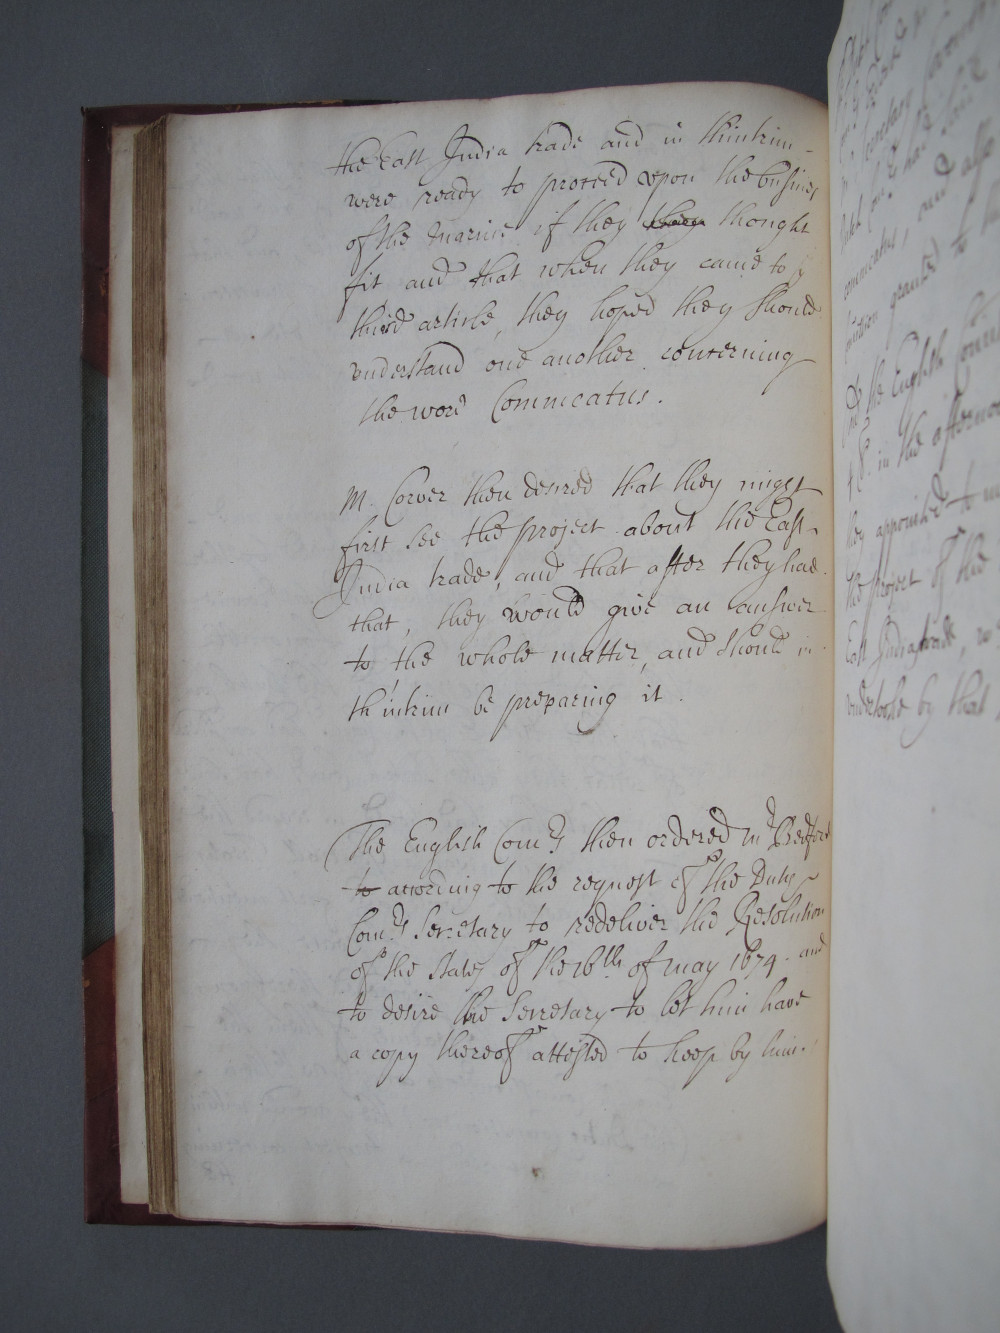 the East India trade and in th'intrim
were ready to proceed upon the busines
of the Marine if they they thought
fit and that when they came to y
third article, they hoped they should
understand one another concerning
the word Commeatus.
M. Corver then desired that they might
first see the project about the East
India trade, and that after they had
that, they would give an answer
to the whole matter, and should in
th'intrim be preparing it.
The English Com.rs then ordered Mr Bedford
to according to the request of the Dutch
Com.rs Secretary to redeliver the Resolution
of the States of the 16th of may 1674. and
to desire the Secretary to let him have
a copy thereof attested to keep by him.
commeatus, and also
granted to
the English Comm
in the afternoo
they appointed to
the project of the
East India trade, w
undertooke by that